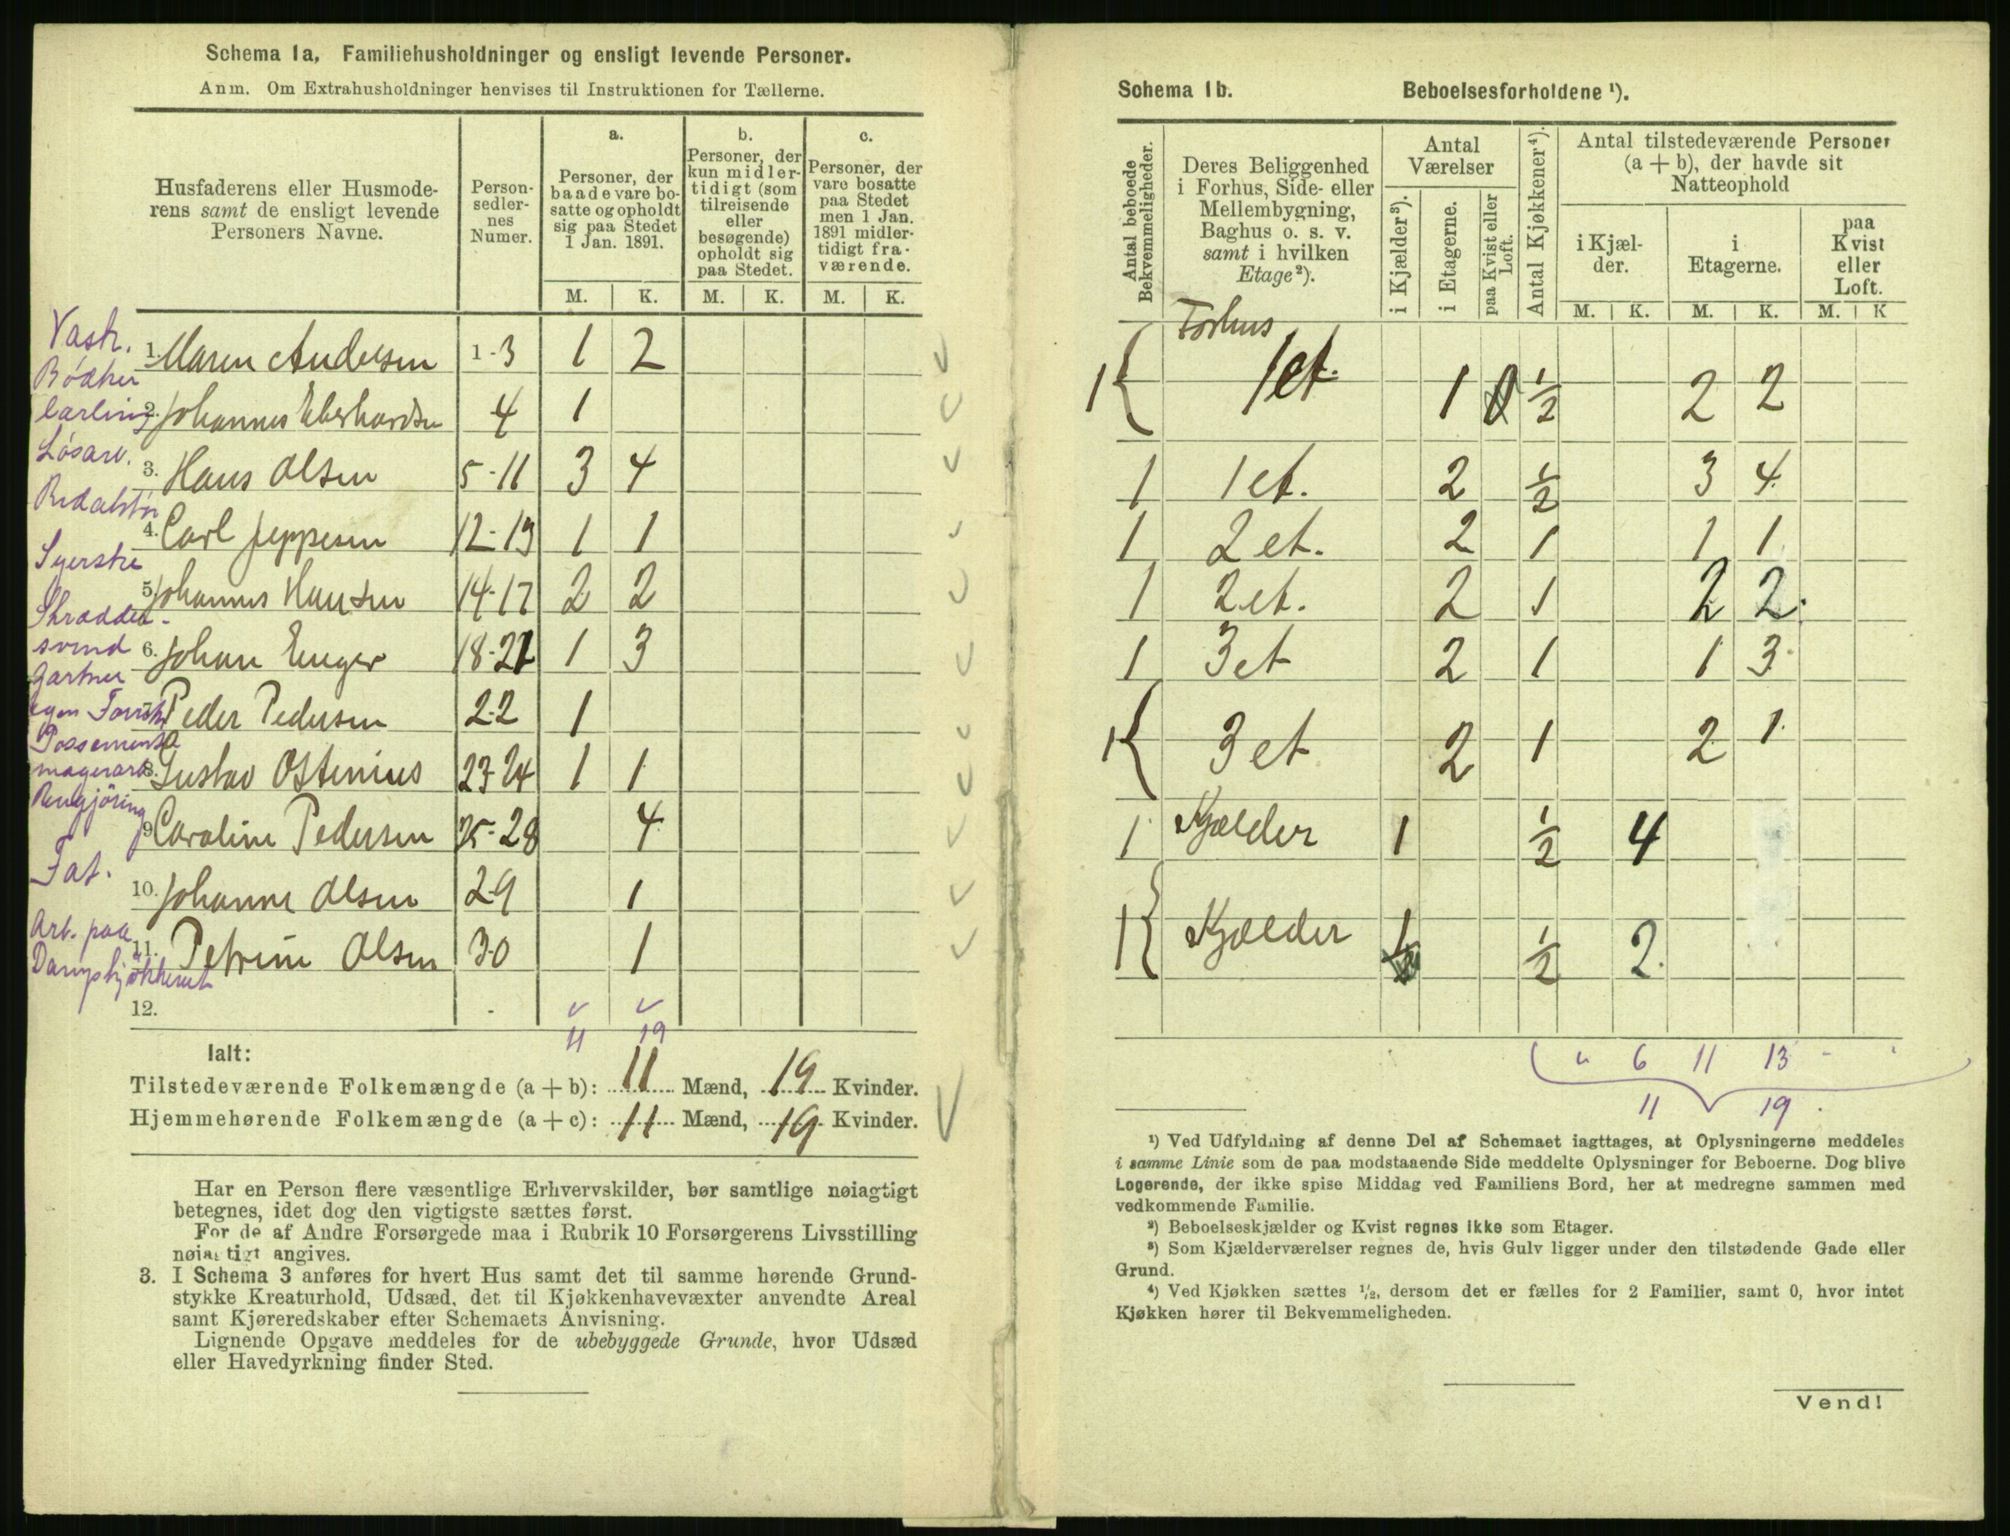 Schema 1a, Familiehusholdninger og ensligt levende Personer.
Anm. Om Extrahusholdninger henvises til Instruktionen for Tællerne.
Husfaderens eller Husmode-
rens samt de ensligt levende
Personers Navne.
Person-
sedler-
nes
Numer.
a.
Personer, der
baade vare bo-
satte og opholdt
sig paa Stedet
1 Jan. 1891.
b.
Personer, der
kun midler-
tidigt (som
tilreisende
eller
besøgende)
opholdt sig
paa Stedet.
c.
Personer, der
vare bosatte
paa Stedet
men 1 Jan.
1891 midler-
tidigt fra-
værende.
M. K. M. K. M. K.
Vask.
1. Maren Andersen 1-3 1 2
Bødker
lærling
2. Johannes Eberhardsen 4 1
Løsarb.
3. Hans Olsen 5-11 3 4
Redaktør
4. Carl Jeppesen 12-13 1 1
Syerske
5. Johannes Hansen 14-17 2 2
Skrædder-
svend
6. Johan Enger 18-21 1 3
Gartner
egen Forretn.
7. Peder Pedersen 22 1
Possement
magerarb.
8. Gustav Ostenius 23-24 1 1
Rengjøring
9. Caroline Pedersen 25-28 4
Fat.
10. Johanne Olsen 29 1
Arb. paa
Dampskjøkkenet
11. Petrine Olsen 30 1
12.
11 19
Ialt:
Tilstedeværende Folkemængde (a + b): 11 Mænd, 19 Kvinder.
Hjemmehørende Folkemængde (a + c): 11 Mænd, 19 Kvinder.
Har en Person flere væsentlige Erhvervskilder, bør samtlige nøiagtigt
betegnes, idet dog den vigtigste sættes først.
For de af Andre Forsørgede maa i Rubrik 10 Forsørgerens Livsstilling
nøiagtigt angives.
3. I Schema 3 anføres for hvert Hus samt det til samme hørende Grund-
stykke Kreaturhold, Udsæd, det til Kjøkkenhavevæxter anvendte Areal
samt Kjøreredskaber efter Schemaets Anvisning.
Lignende Opgave meddeles for de ubebyggede Grunde, hvor Udsæd
eller Havedyrkning finder Sted.
Schema 1b. Beboelsesforholdene ¹).
Antal beboede
Bekvemmeligheder.
Deres Beliggenhed
i Forhus, Side- eller
Mellembygning,
Baghus o. s. v.
samt i hvilken
Etage ²).
Antal
Værelser
i Kjælder ³).
i Etagerne.
paa Kvist eller
Loft.
Antal Kjøkkener ⁴).
Antal tilstedeværende Personer
(a + b), der havde sit
Natteophold
i Kjæl-
der.
i
Etagerne.
paa
Kvist
eller
Loft.
M. K. M. K. M. K
Forhus
1 1 et. 1 0 ½ 2 2
1 1 et. 2 ½ 3 4
1 2 et. 2 1 1 1
1 2 et. 2 1 2 2
1 3 et 2 1 1 3
1 3 et 2 1 2 1
1 Kjælder 1 ½ 4
1 Kjælder 1 ½ 2
" 6 11 13 - -
11 19
¹) Ved Udfyldning af denne Del af Schemaet iagttages, at Oplysningerne meddeles
i samme Linie som de paa modstaaende Side meddelte Oplysninger for Beboerne. Dog blive
Logerende, der ikke spise Middag ved Familiens Bord, her at medregne sammen med
vedkommende Familie.
²) Beboelseskjælder og Kvist regnes ikke som Etager.
³) Som Kjælderværelser regnes de, hvis Gulv ligger under den tilstødende Gade eller
Grund.
⁴) Ved Kjøkken sættes ½, dersom det er fælles for 2 Familier, samt 0, hvor intet
Kjøkken hører til Bekvemmeligheden.
Vend!